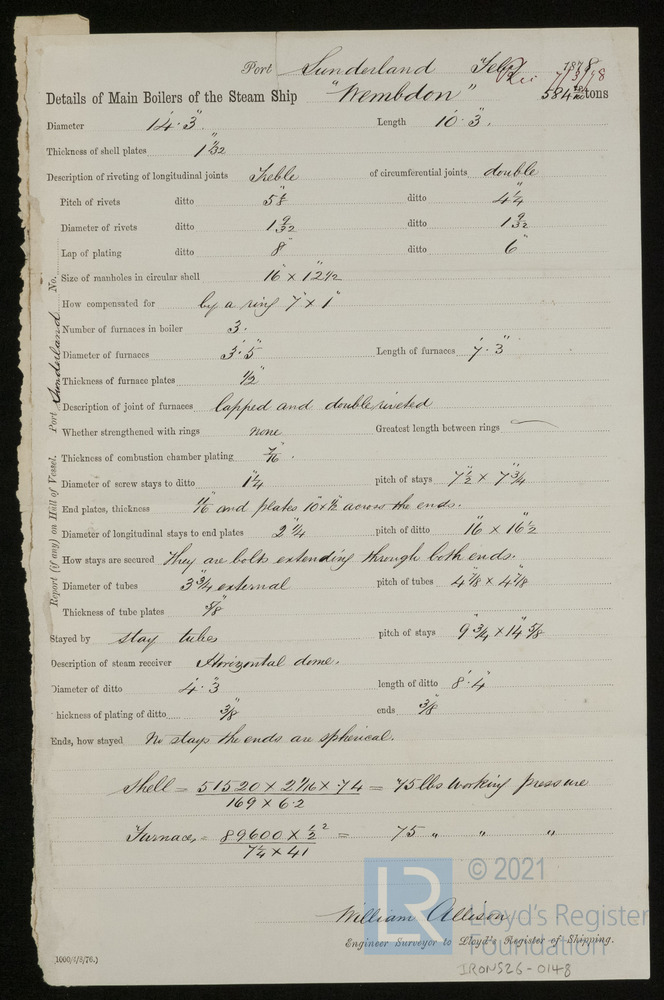 Port Sunderland Feby 1878
Rec 7/3/78
Details of Main Boilers of the Steam Ship "Wembdon" 584 tons
Diameter 14' 3" Length 10' 3"
Thickness of shell plates 1 3/32
Description of riveting of longitudinal joints Treble of circumferential joints double
Pitch of rivets ditto ditto 4 1/4"
Diameter of rivets ditto 1 9/32" ditto 1 9/32"
Lap of plating ditto 8" ditto 6"
Size of manholes in circular shell 16" x 12 1/2"
How compensated for by a ring 7" x 1"
Number of furnaces in boiler 3.
Diameter of furnaces 3' 5" Length of furnaces 7' 3"
Thickness of furnace plates 1/2"
Description of joint of furnaces lapped and double riveted
Whether strengthened with rings none Greatest length between rings
Thickness of combustion chamber plating 7/16"
Diameter of screw stays to ditto 1 1/4" pitch of stays 7 1/2" x 7 3/4"
End plates, thickness and plates 10 x 1/2 across the ends.
Diameter of longitudinal stays to end plates 2 1/4" pitch of ditto 16" x 16 1/2"
How stays are secured They are bolts extending through both ends.
Diameter of tubes 3 3/4" external pitch of tubes 4 7/8" x 4 7/8"
Thickness of tube plates 5/8"
Stayed by stay tubes pitch of stays 9 3/4" x 14 5/8"
Description of steam receiver Horizontal dome.
Diameter of ditto 4' 3" length of ditto 8' 4"
hickness of plating of ditto 3/8" ends 3/8"
Ends, how stayed No stays the ends are spherical.
Shell = 51520 x 2 1/16 x .74 = 75 lbs Working pressure
169 x 6.2
Furnaces = 89600 x 1/2² = 75 " " "
7 1/4 x 41
William Allison
Engineer Surveyor to Lloyd's Register of Shipping.
(1000/6/8/76.)
IRONS26-0148
Report (if any) on Hull of Vessel. Port Sunderland No.
LR
© 2021
Lloyd's Register
Foundation